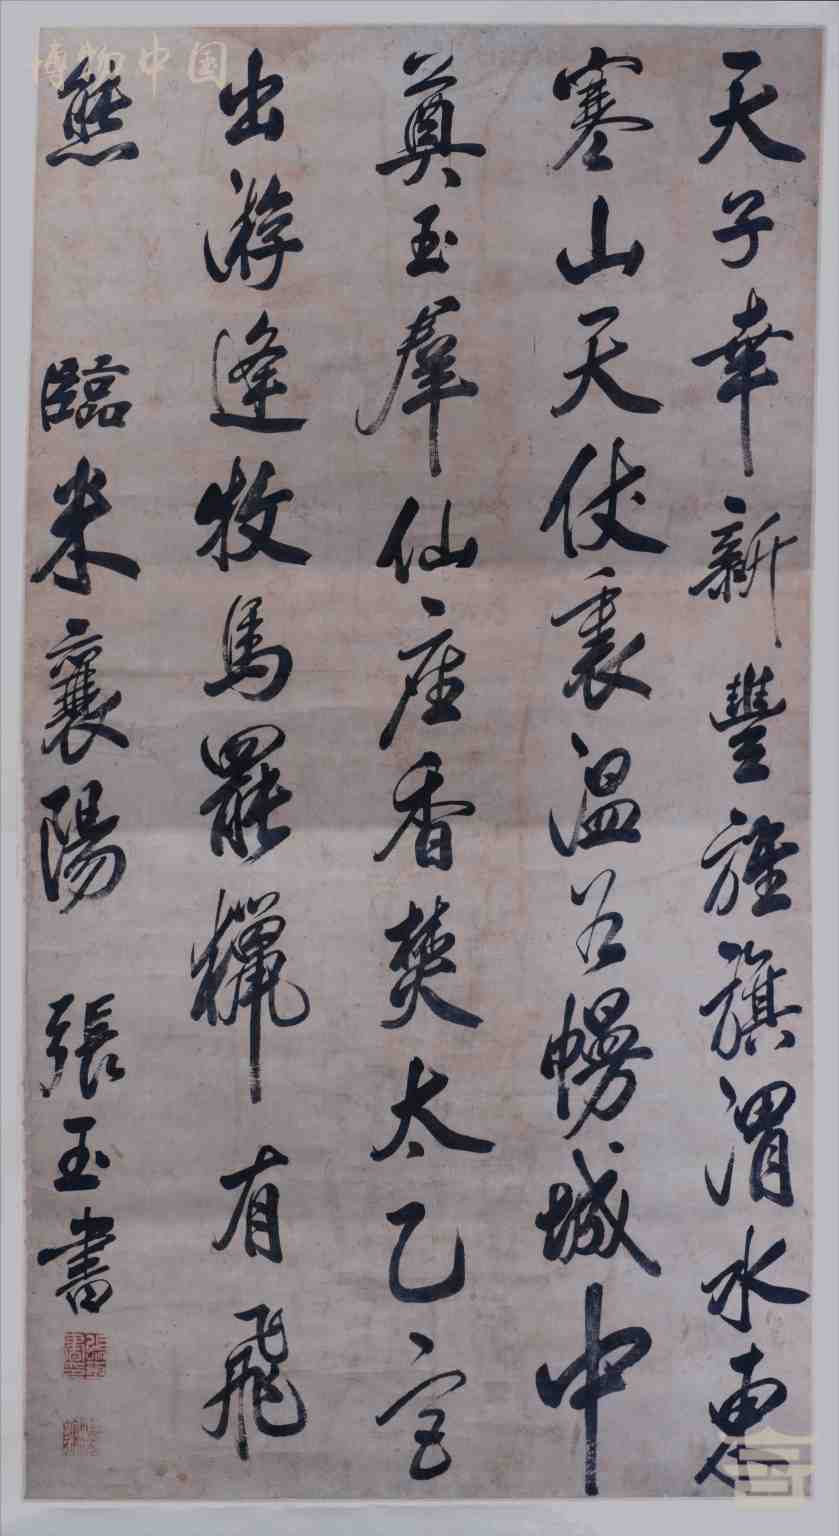 天子幸新豐旌旗渭水東
寒山天仗裏温谷幔城中
奠玉羣仙座香焚太乙宫
出游逢牧馬罷獵有飛
熊 臨米襄陽 張玉書
博物中国